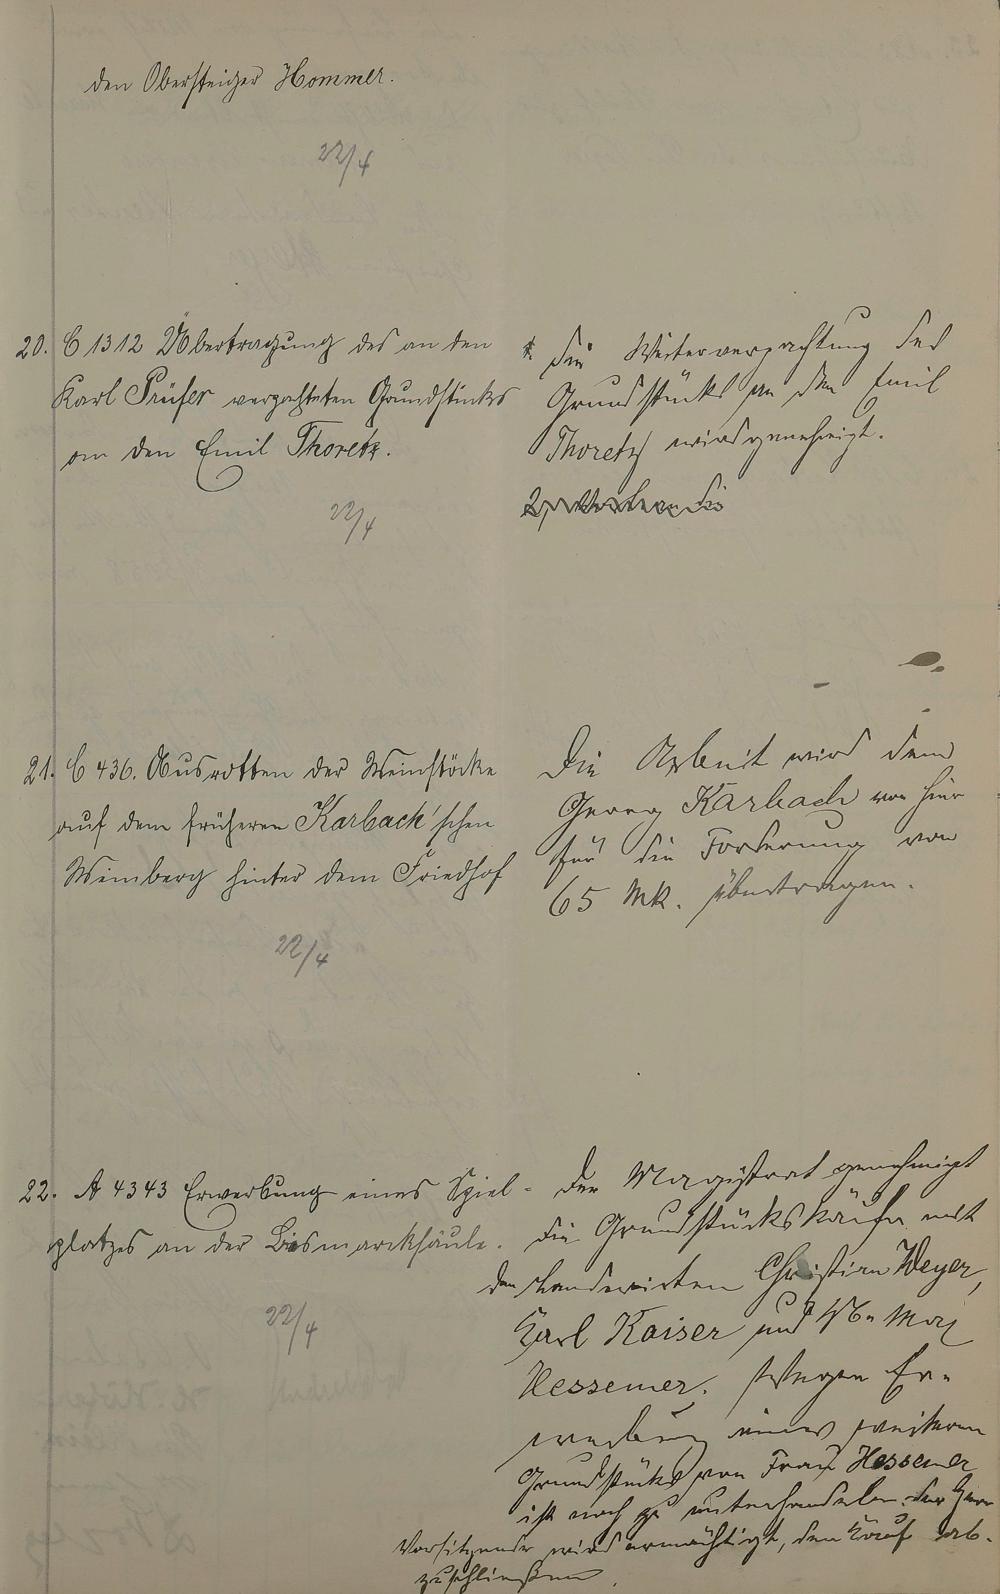 den Obersteiger Hommer.
22/4
20. C 1312 Übertragung des an den
Karl Prüfer verpachteten Grundstücks
an den Emil Thoretz.
22/4
die Weiterverpachtung des
Grundstücks an den Emil
Thoretz wird genehmigt.
21. C 436. Ausrotten der Weinstöcke
auf dem früheren Karbach'schen
Weinberg hinter dem Friedhof
22/4
Die Arbeit wird dem
Georg Karbach von hier
für die Forderung von
65 Mk. übertragen.
22. A 4343 Erwerbung eines Spiel-
platzes an der Bismarcksäule.
22/4
Der Magistrat genehmigt
die Grundstückskäufe mit
den Landwirten Christian Weyer,
Karl Kaiser und
Hessemer. Wegen Er-
werbung eines weiteren
Grundstücks von Frau Hessemer
ist noch zu unterhandeln. Der Herr
Vorsitzende wird ermächtigt, den Kauf ab-
zuschließen.